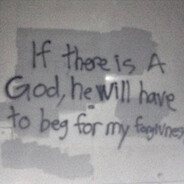 If there is A
God, he will have
to beg for my forgivness